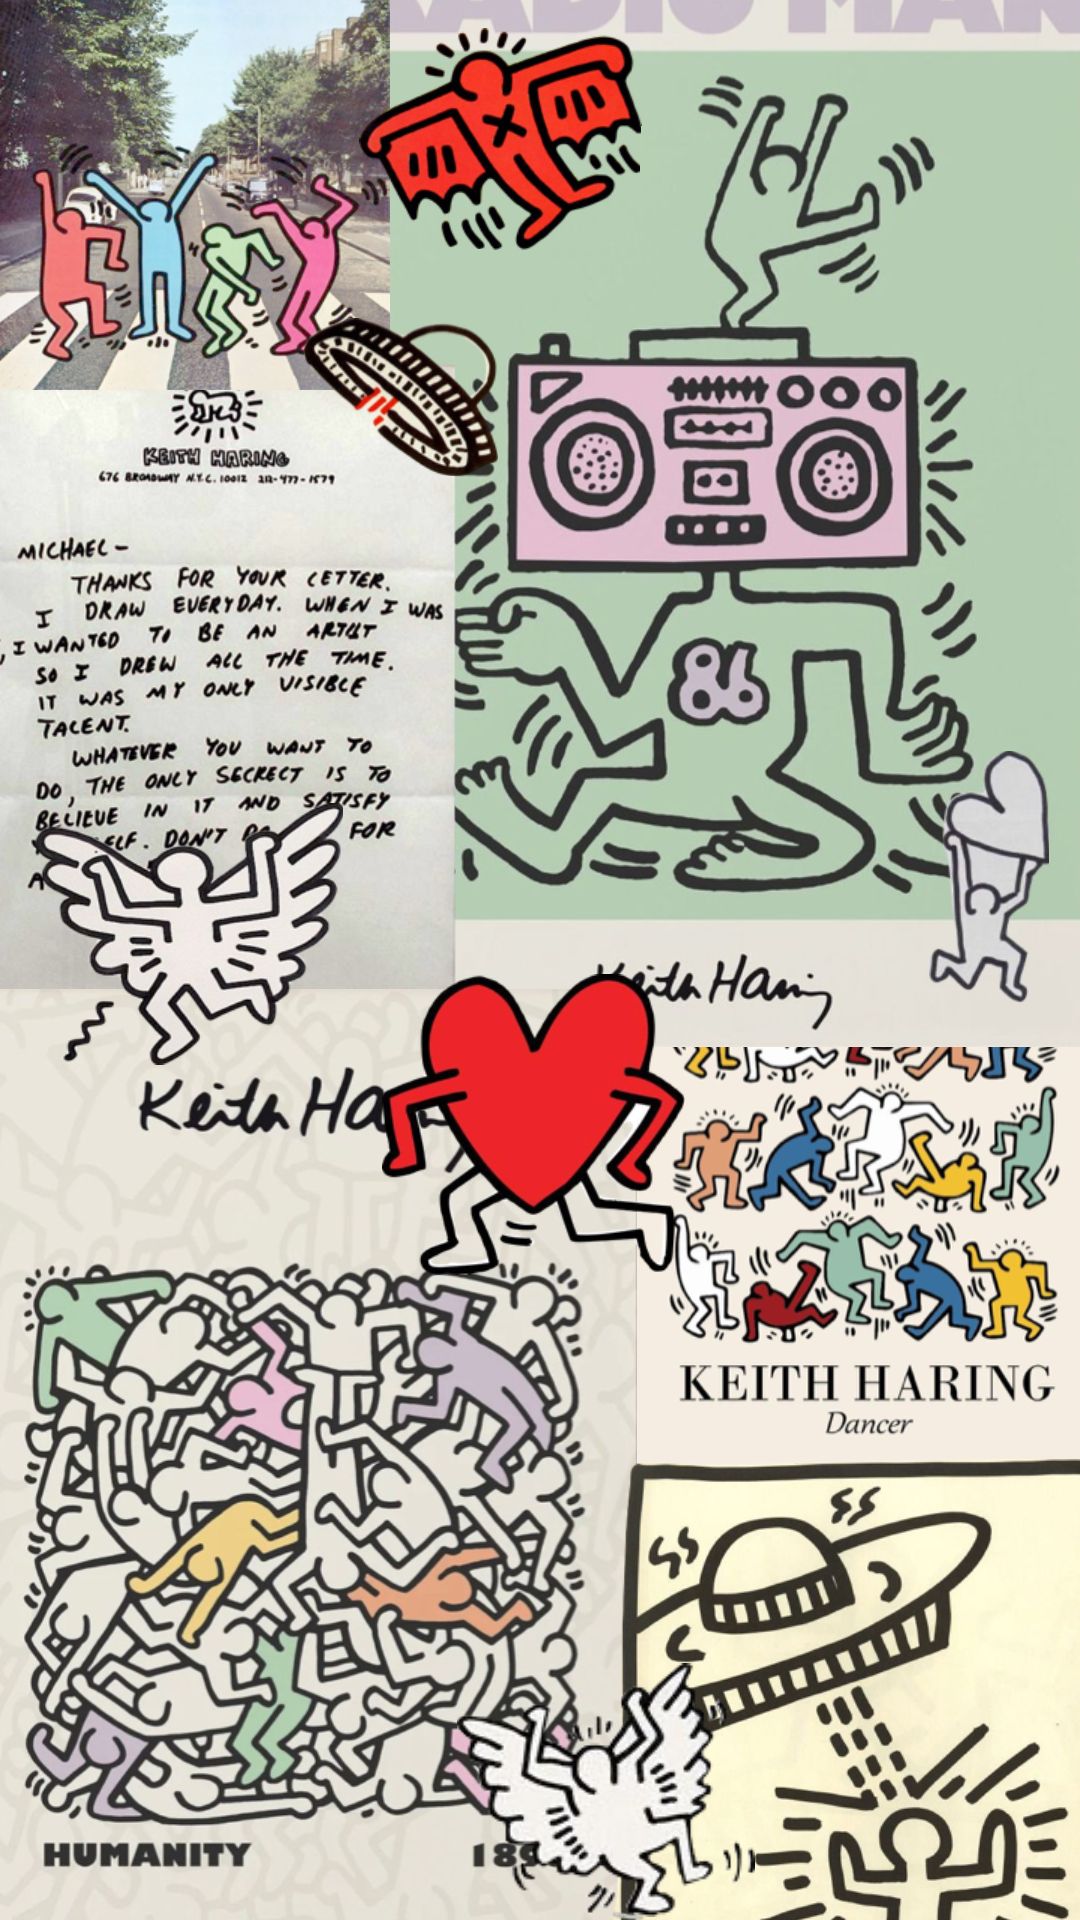 RADIO MAN
KEITH HARING
676 BROADWAY N.Y.C. 10012 212-477-1579
MICHAEL –
THANKS FOR YOUR LETTER.
I DRAW EVERYDAY. WHEN I WAS
, I WANTED TO BE AN ARTIST
SO I DREW ALL THE TIME.
IT WAS MY ONLY VISIBLE
TALENT.
WHATEVER YOU WANT TO
DO, THE ONLY SECRECT IS TO
BELIEVE IN IT AND SATISFY
ELF. DON'T DO FOR
A
86
Keith Haring
Keith Ha
KEITH HARING
Dancer
HUMANITY